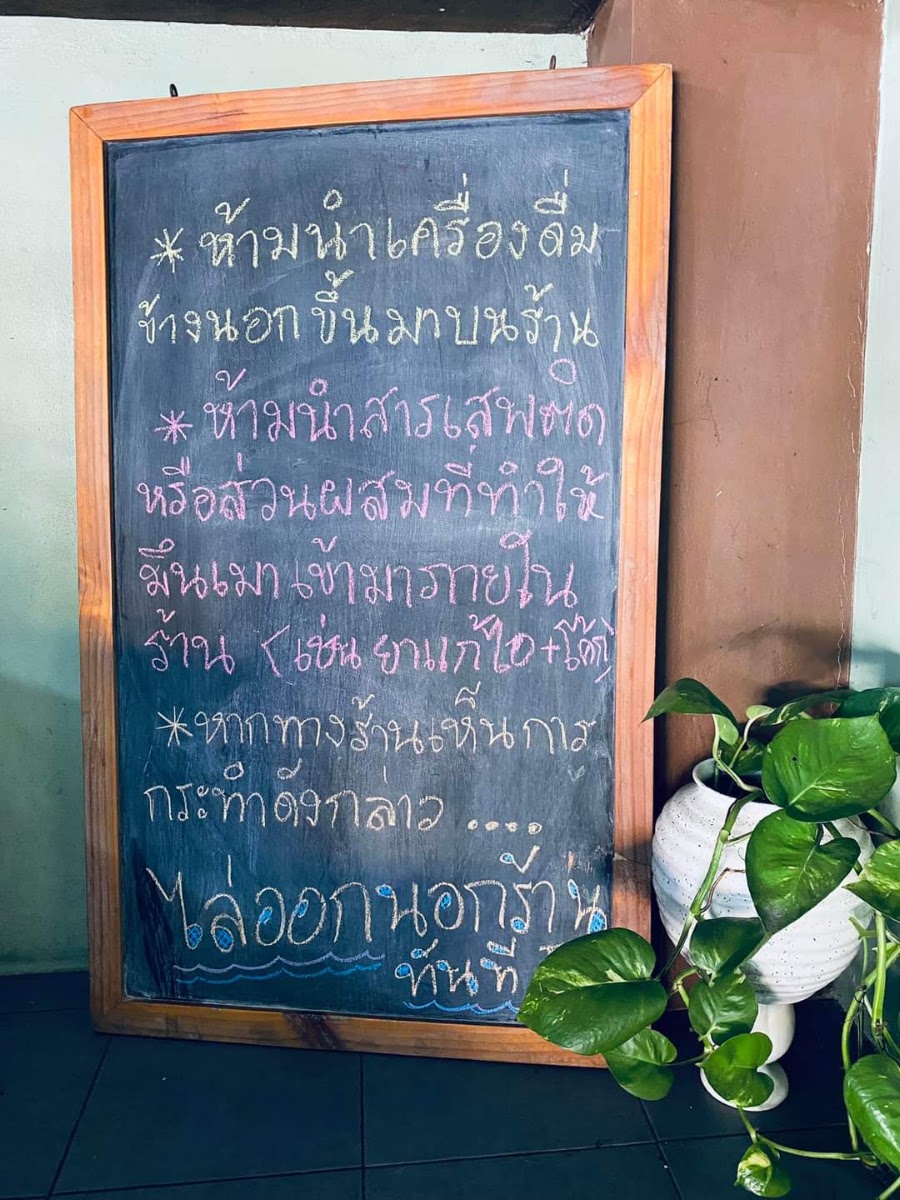 *ห้ามนำเครื่องดื่ม
ข้างนอกขึ้นมาบนร้าน
*ห้ามนำสารเสพติด
หรือส่วนผสมที่ทำให้
มึนเมาเข้ามาภายใน
ร้าน (เช่น ยาแก้ไอ+โค้ก)
*หากทางร้านเห็นการ
กระทำดังกล่าว ....
ไล่ออกนอกร้าน
ทันที